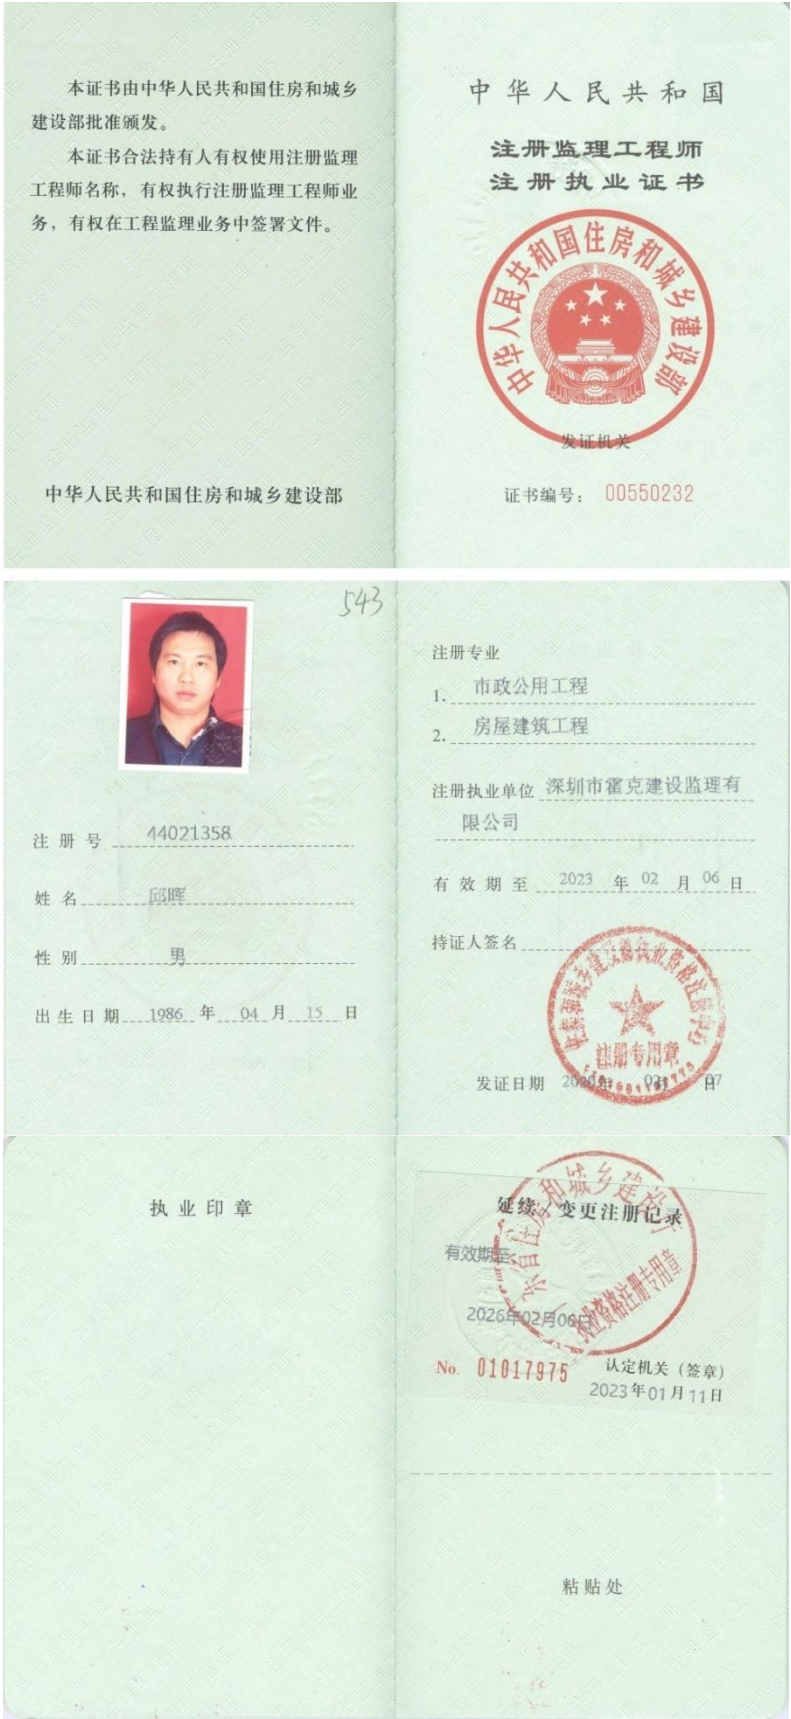 本证书由中华人民共和国住房和城乡
建设部批准颁发。
本证书合法持有人有权使用注册监理
工程师名称，有权执行注册监理工程师业
务，有权在工程监理业务中签署文件。
中华人民共和国住房和城乡建设部
中华人民共和国
注册监理工程师
注册执业证书
中华人民共和国住房和城乡建设部
发证机关
证书编号： 00550232
543
注册号 44021358
姓名 邱晖
性别 男
出生日期 1986 年 04 月 15 日
注册专业
1. 市政公用工程
2. 房屋建筑工程
注册执业单位 深圳市霍克建设监理有
限公司
有效期至 2023 年 02 月 06 日
持证人签名
执业资格注册中心
注册专用章
发证日期 2020年 02月 07日
执业印章
东省住房和城乡建设厅
执业资格注册专用章
延续、变更注册记录
有效期至
2026年02月06日
No. 01017975
认定机关（签章）
2023年01月11日
粘贴处